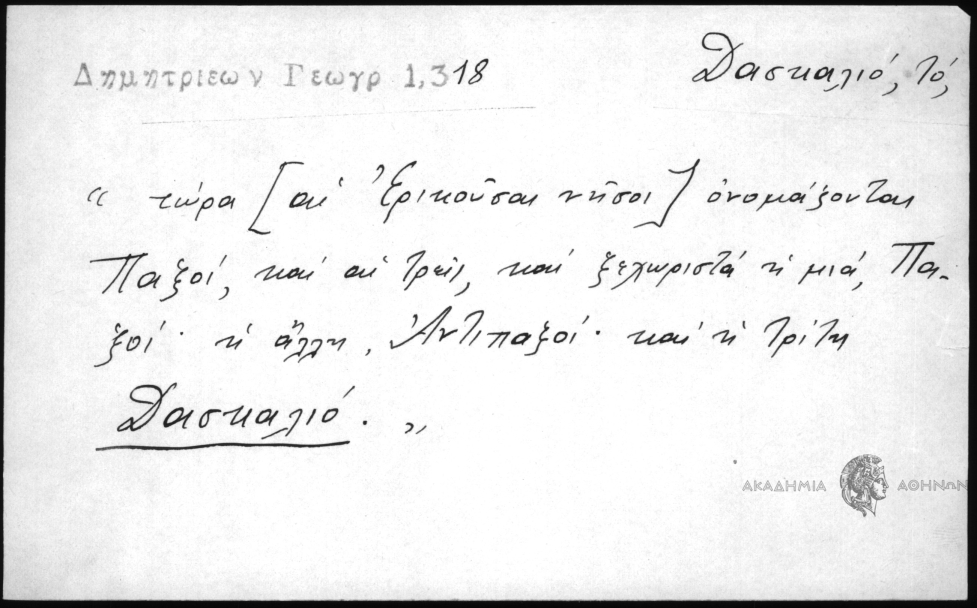 Δημητριεων Γεωγρ 1,318
Δασκαλιό, τό,
“ τώρα [αἱ Ἐρικοῦσαι νῆσοι] ὀνομάζονται
Παξοί, καί αἱ τρεῖς, καί ξεχωριστά ἡ μιά, Πα-
ξοί· ἡ ἄλλη, Ἀντιπαξοί· καί ἡ τρίτη
Δασκαλιό. „
ΑΚΑΔΗΜΙΑ ΑΘΗΝΩΝ